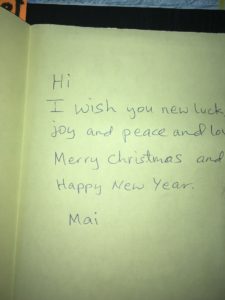 Hi
I wish you new luck
joy and peace and lo
Merry Christmas and
Happy New Year.
Mai